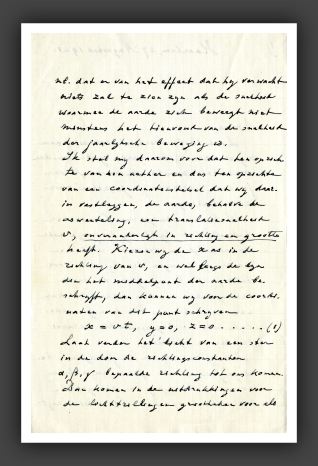 nl. dat er van het effect dat hij verwacht
niets zal te zien zijn als de snelheid
waarmee de aarde zich beweegt niet
minstens het tienvoud van de snelheid
der jaarlijksche beweging is.
Ik stel mij daarom voor dat ten opzich
te van den aether en dus ten opzichte
van een coordinatenstelsel dat wij daar
in vastleggen, de aarde, behalve de
aswenteling, een translatiesnelheid
v, onveranderlijk in richting en grootte
heeft. Kiezen wij de x as in de
richting van v, en wel langs de lijn
die het middelpunt der aarde be-
schrijft, dan kunnen wij voor de coordi-
naten van dit punt schrijven
x = vt, y=0, z=0 . . . . . (1)
Laat verder het licht van een ster
in de door de richtingsconstanten
α, β, γ bepaalde richting tot ons komen.
Dan komen in de uitdrukkingen voor
de lichttrillingen grootheden voor als